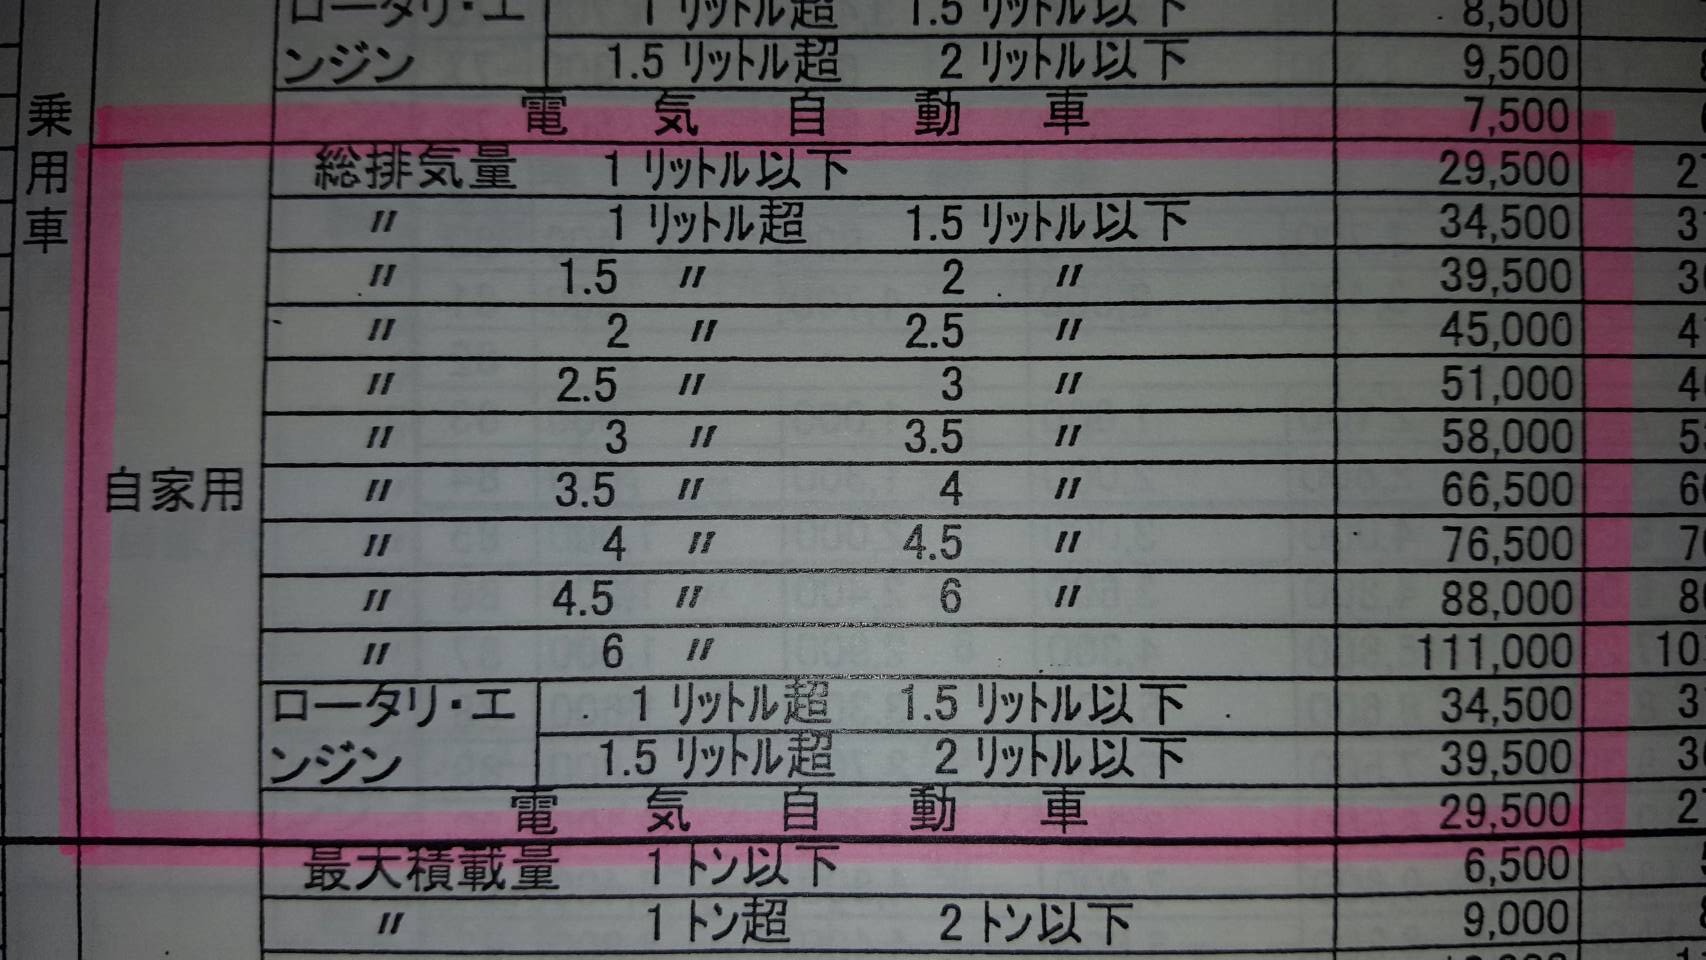 ロータリ・エ 1 リットル超 1.5 リットル以下 8,500
ンジン 1.5 リットル超 2 リットル以下 9,500
電気自動車 7,500
乗用車
総排気量 1 リットル以下 29,500
〃 1 リットル超 1.5 リットル以下 34,500
〃 1.5 〃 2 〃 39,500
〃 2 〃 2.5 〃 45,000
〃 2.5 〃 3 〃 51,000
〃 3 〃 3.5 〃 58,000
自家用 〃 3.5 〃 4 〃 66,500
〃 4 〃 4.5 〃 76,500
〃 4.5 〃 6 〃 88,000
〃 6 〃 111,000
ロータリ・エ 1 リットル超 1.5 リットル以下 34,500
ンジン 1.5 リットル超 2 リットル以下 39,500
電気自動車 29,500
最大積載量 1 トン以下 6,500
〃 1 トン超 2 トン以下 9,000